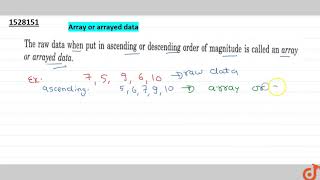 1528151
Array or arrayed data
The raw data when put in ascending or descending order of magnitude is called an array
or arrayed data.
Ex: 7, 5, 9, 6, 10 → raw data
ascending. 5, 6, 7, 9, 10 → array or
doubtnut